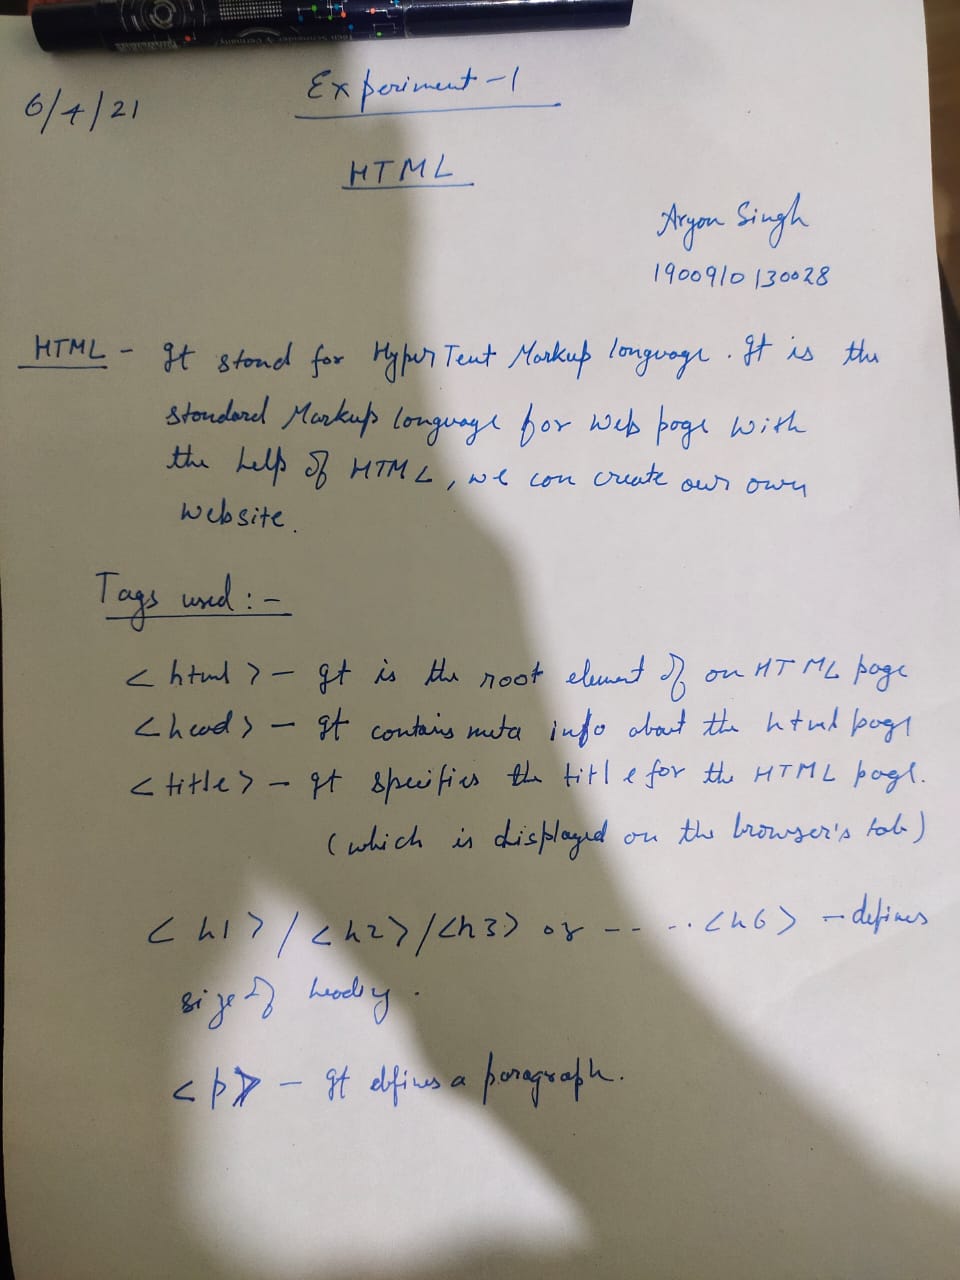 Experiment-1
6/4/21
HTML
Aryan Singh
1900910130028
HTML - It stand for Hyper Text Markup language. It is the
standard Markup language for web page with
the help of HTML, we can create our own
website.
Tags used :-
<html> - It is the root element of an HTML page
<head> - It contains meta info about the html page
<title> - It specifies the title for the HTML page.
(which is displayed on the browser's tab)
<h1>/<h2>/<h3> or -- - .. <h6> - defines
size of heading.
<p> - It defines a paragraph.